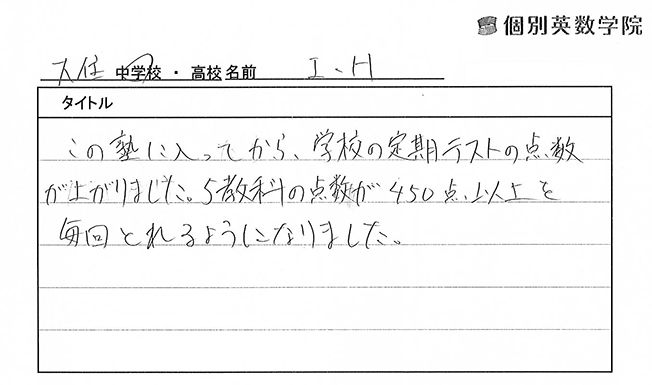 個別英数学院
大住 中学校 ・ 高校 名前 I.H
タイトル
この塾に入ってから、学校の定期テストの点数
が上がりました。5教科の点数が450点以上を
毎回とれるようになりました。